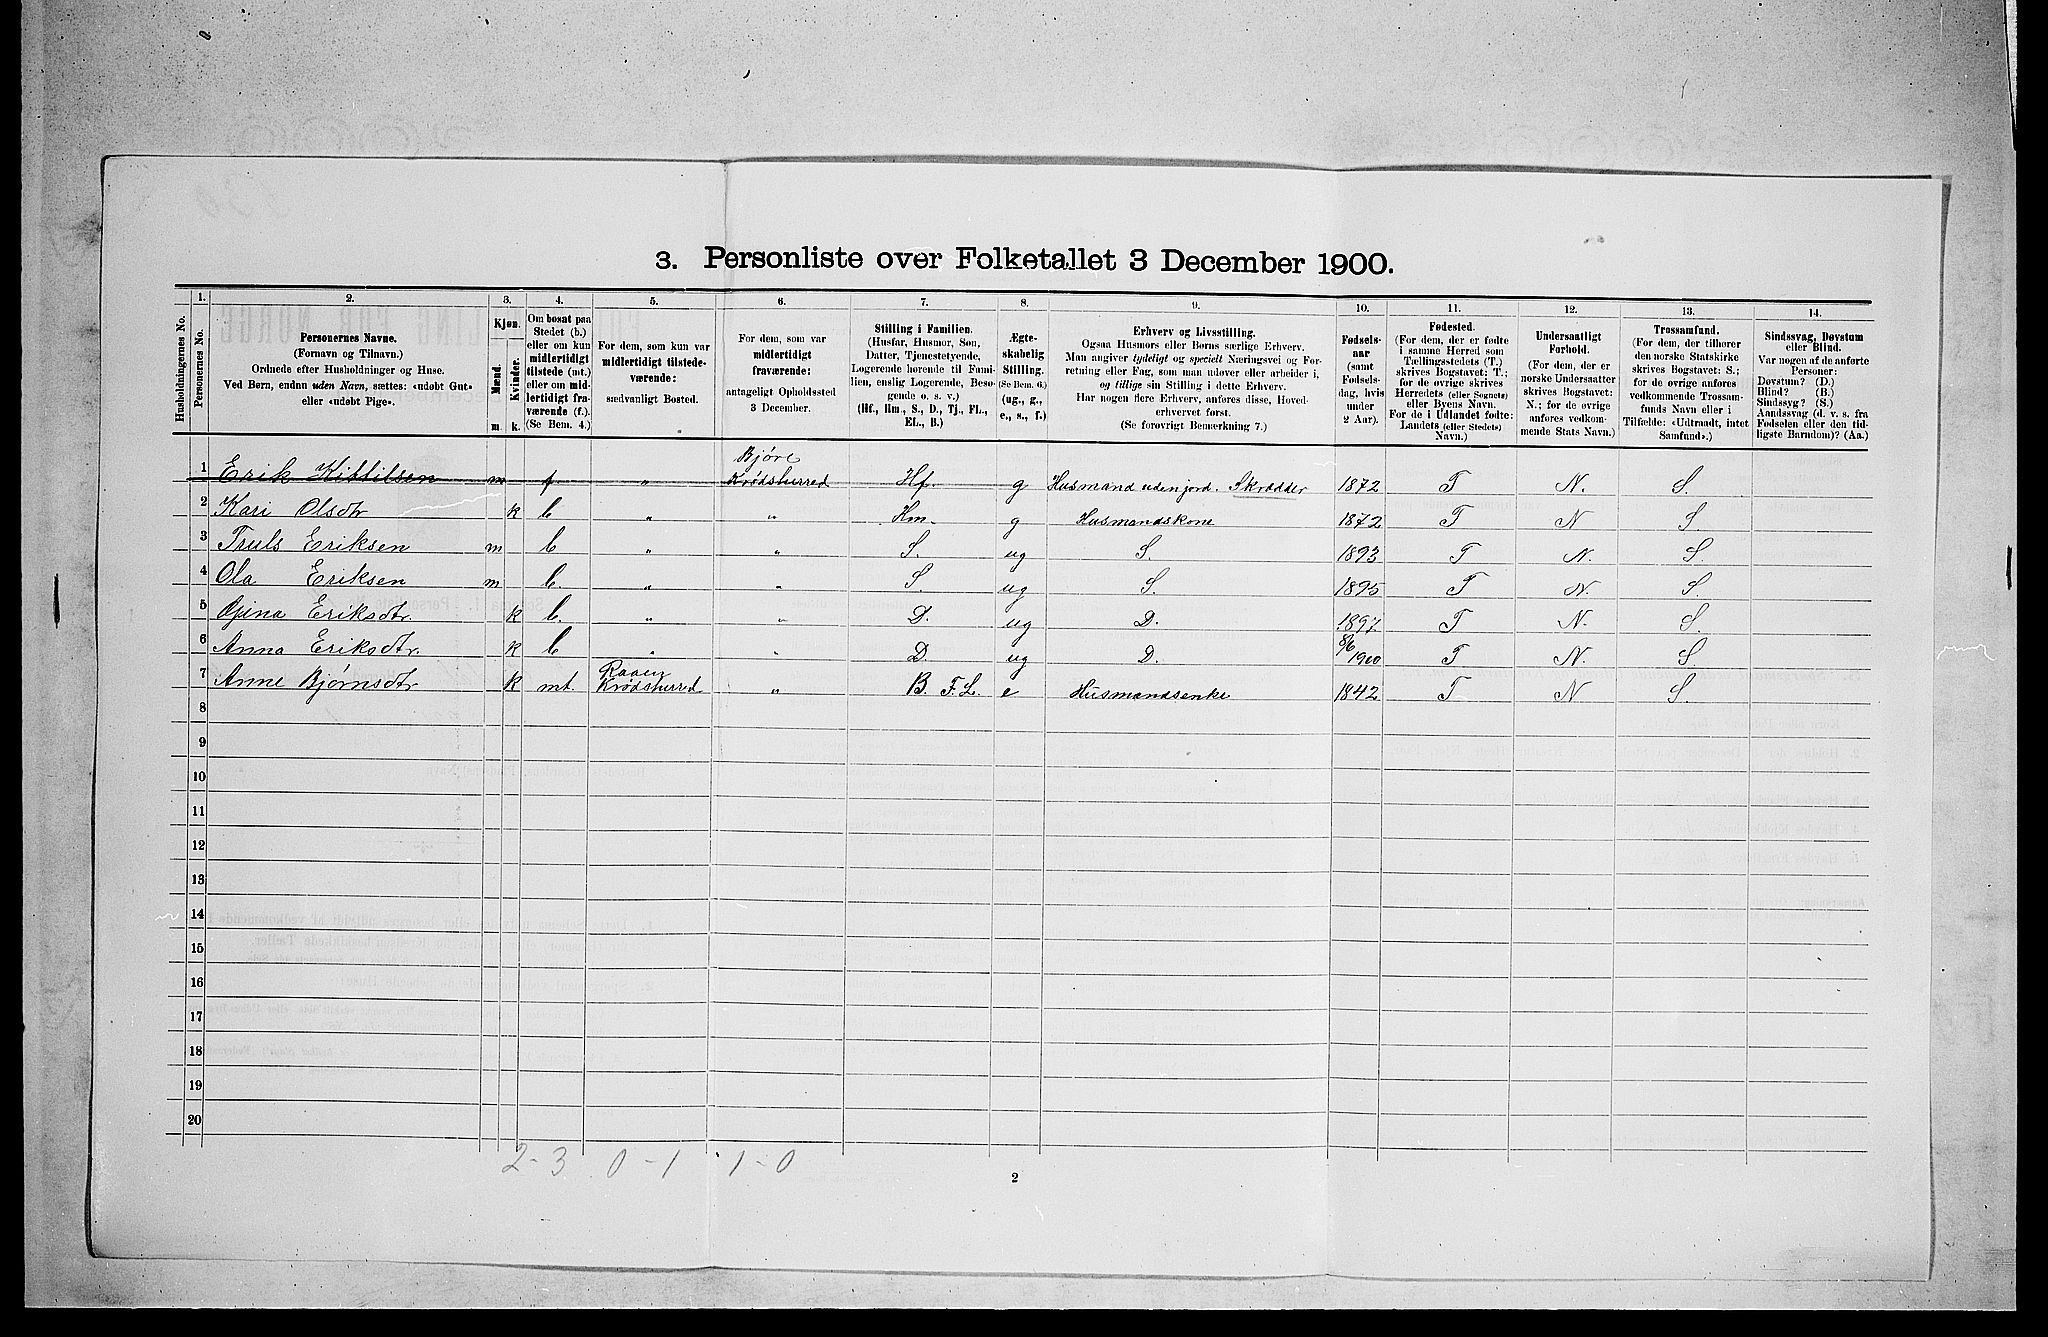 3. Personliste over Folketallet 3 December 1900.
1. 2. 3. 4. 5. 6. 7. 8. 9. 10. 11. 12. 13. 14.
Husholdningernes No.
Personernes No.
Personernes Navne.
(Fornavn og Tilnavn.)
Ordnede efter Husholdninger og Huse.
Ved Børn, endnu uden Navn, sættes: «udøbt Gut»
eller «udøbt Pige».
Kjøn.
Mænd.
Kvinder.
m. k.
Om bosat paa
Stedet (b.)
eller om kun
midlertidigt
tilstede (mt.)
eller om mid-
lertidigt fra-
værende (f.)
(Se Bem. 4.)
For dem, som kun var
midlertidigt tilstede-
værende:
sædvanligt Bosted.
For dem, som var
midlertidigt
fraværende:
antageligt Opholdssted
3 December.
Stilling i Familien.
(Husfar, Husmor, Søn,
Datter, Tjenestetyende,
Logerende hørende til Fami-
lien, enslig Logerende, Besø-
gende o. s. v.)
(Hf., Hm., S., D., Tj., FL.,
EL., B.)
Ægte-
skabelig
Stilling.
(Se Bem. 6.)
(ug., g.,
e., s., f.)
Erhverv og Livsstilling.
Ogsaa Husmors eller Børns særlige Erhverv.
Man angiver tydeligt og specielt Næringsvei og For-
retning eller Fag, som man udøver eller arbeider i,
og tillige sin Stilling i dette Erhverv.
Har nogen flere Erhverv, anføres disse, Hoved-
erhvervet først.
(Se forøvrigt Bemærkning 7.)
Fødsels-
aar
(samt
Fødsels-
dag, hvis
under
2 Aar).
Fødested.
(For dem, der er fødte
i samme Herred som
Tællingsstedets (T.)
skrives Bogstavet: T.;
for de øvrige skrives
Herredets (eller Sognets)
eller Byens Navn.
For de i Udlandet fødte:
Landets (eller Stedets)
Navn.)
Undersaatligt
Forhold.
(For dem, der er
norske Undersaatter
skrives Bogstavet:
N.; for de øvrige
anføres vedkom-
mende Stats Navn.)
Trossamfund.
(For dem, der tilhører
den norske Statskirke
skrives Bogstavet: S.;
for de øvrige anføres
vedkommende Trossam-
funds Navn eller i
Tilfælde: «Udtraadt, intet
Samfund».)
Sindssvag, Døvstum
eller Blind.
Var nogen af de anførte
Personer:
Døvstum? (D.)
Blind? (B.)
Sindssyg? (S.)
Aandssvag (d. v. s. fra
Fødselen eller den tid-
ligste Barndom)? (Aa.)
1 Erik Kittilsen m f " Bjøre Krødsherred Hf. g Husmand uden jord. Skrædder 1872 T N. S.
2 Kari Olsdtr k b " " Hm. g Husmandskone 1872 T N S
3 Truls Eriksen m b " " S. ug S. 1893 T N. S
4 Ola Eriksen m b. " " S ug S. 1895 T N. S
5 Gina Eriksdtr. k b. " " D. ug D. 1897 T N. S
6 Anna Eriksdtr. k b " " D. ug D. 8/6 1900 T N. S
7 Anne Bjørnsdtr k mt. Raaen Krødsherred " B. F.L. e Husmandsenke 1842 T N S
8
9
10
11
12
13
14
15
16
17
18
19
20
2-3 0-1 1-0
2